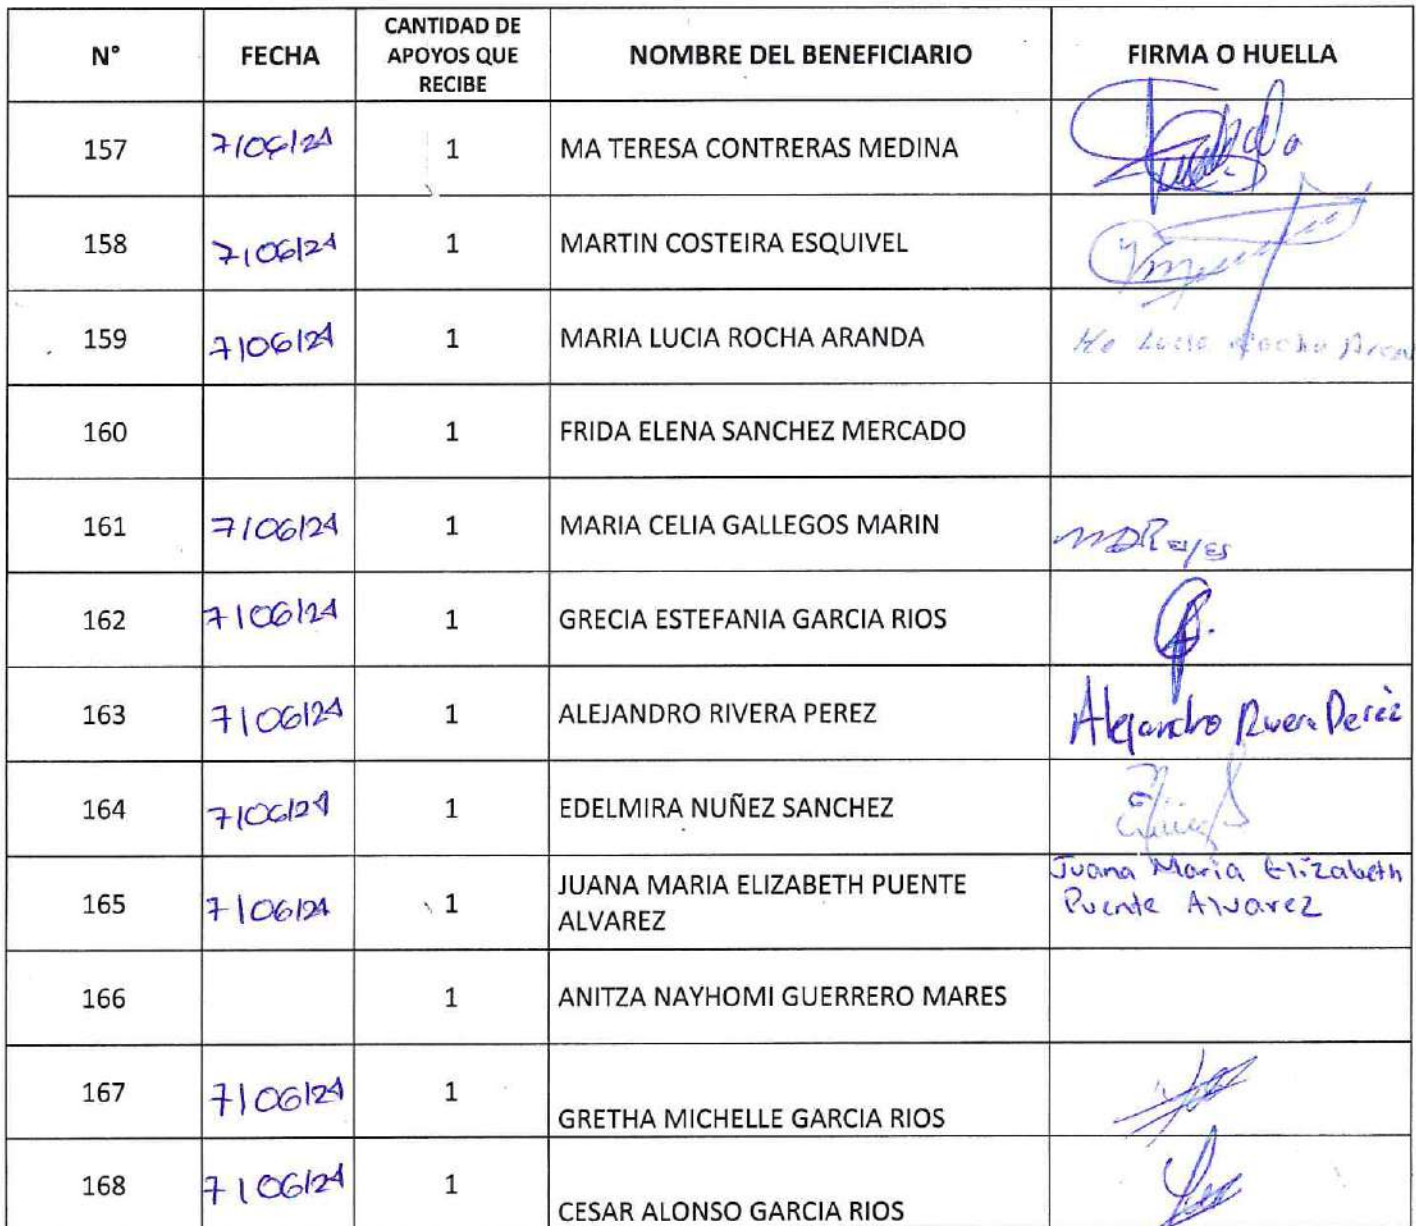 N° FECHA CANTIDAD DE APOYOS QUE RECIBE NOMBRE DEL BENEFICIARIO FIRMA O HUELLA
157 7/06/24 1 MA TERESA CONTRERAS MEDINA
158 7/06/24 1 MARTIN COSTEIRA ESQUIVEL
159 7/06/24 1 MARIA LUCIA ROCHA ARANDA Ma Lucia Rocha Aran
160 1 FRIDA ELENA SANCHEZ MERCADO
161 7/06/24 1 MARIA CELIA GALLEGOS MARIN MDReyes
162 7/06/24 1 GRECIA ESTEFANIA GARCIA RIOS
163 7/06/24 1 ALEJANDRO RIVERA PEREZ Alejandro Rivera Perez
164 7/06/24 1 EDELMIRA NUÑEZ SANCHEZ
165 7/06/24 1 JUANA MARIA ELIZABETH PUENTE ALVAREZ Juana Maria Elizabeth Puente Alvarez
166 1 ANITZA NAYHOMI GUERRERO MARES
167 7/06/24 1 GRETHA MICHELLE GARCIA RIOS
168 7/06/24 1 CESAR ALONSO GARCIA RIOS